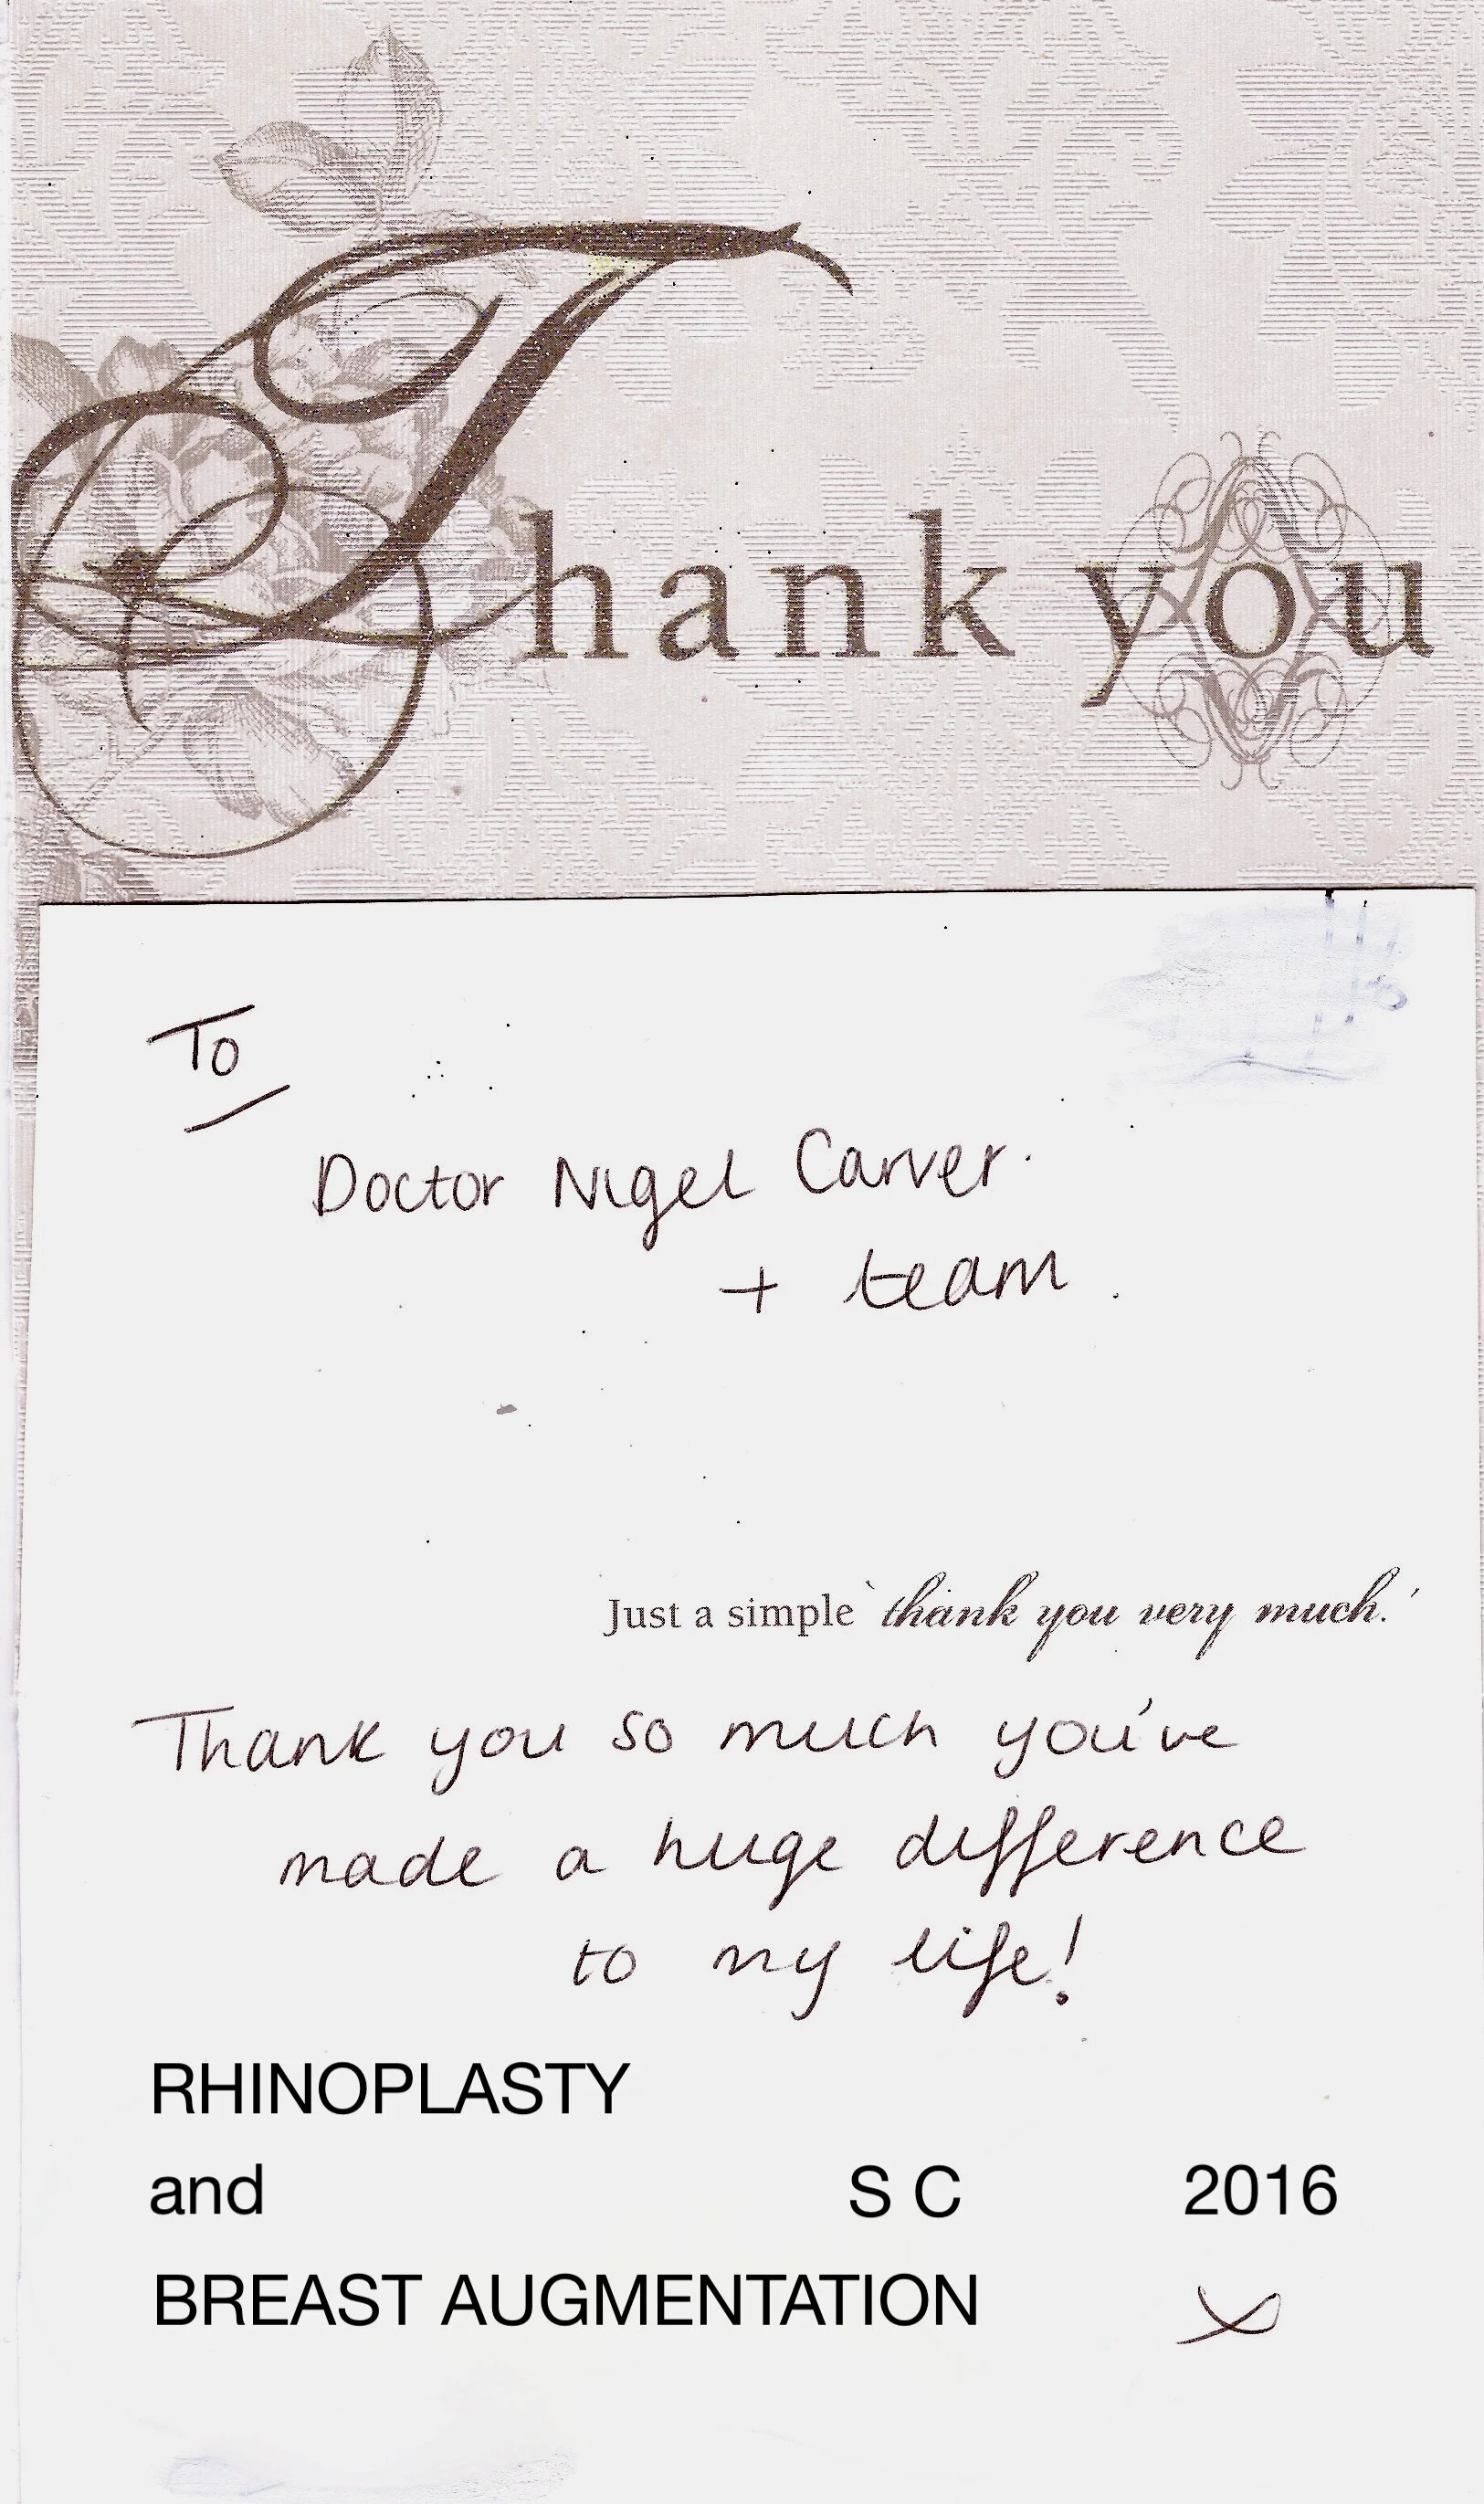 Thank you
To
Doctor Nigel Carver.
+ team.
Just a simple ‘thank you very much.’
Thank you so much you've
made a huge difference
to my life!
RHINOPLASTY
and S C 2016
BREAST AUGMENTATION x